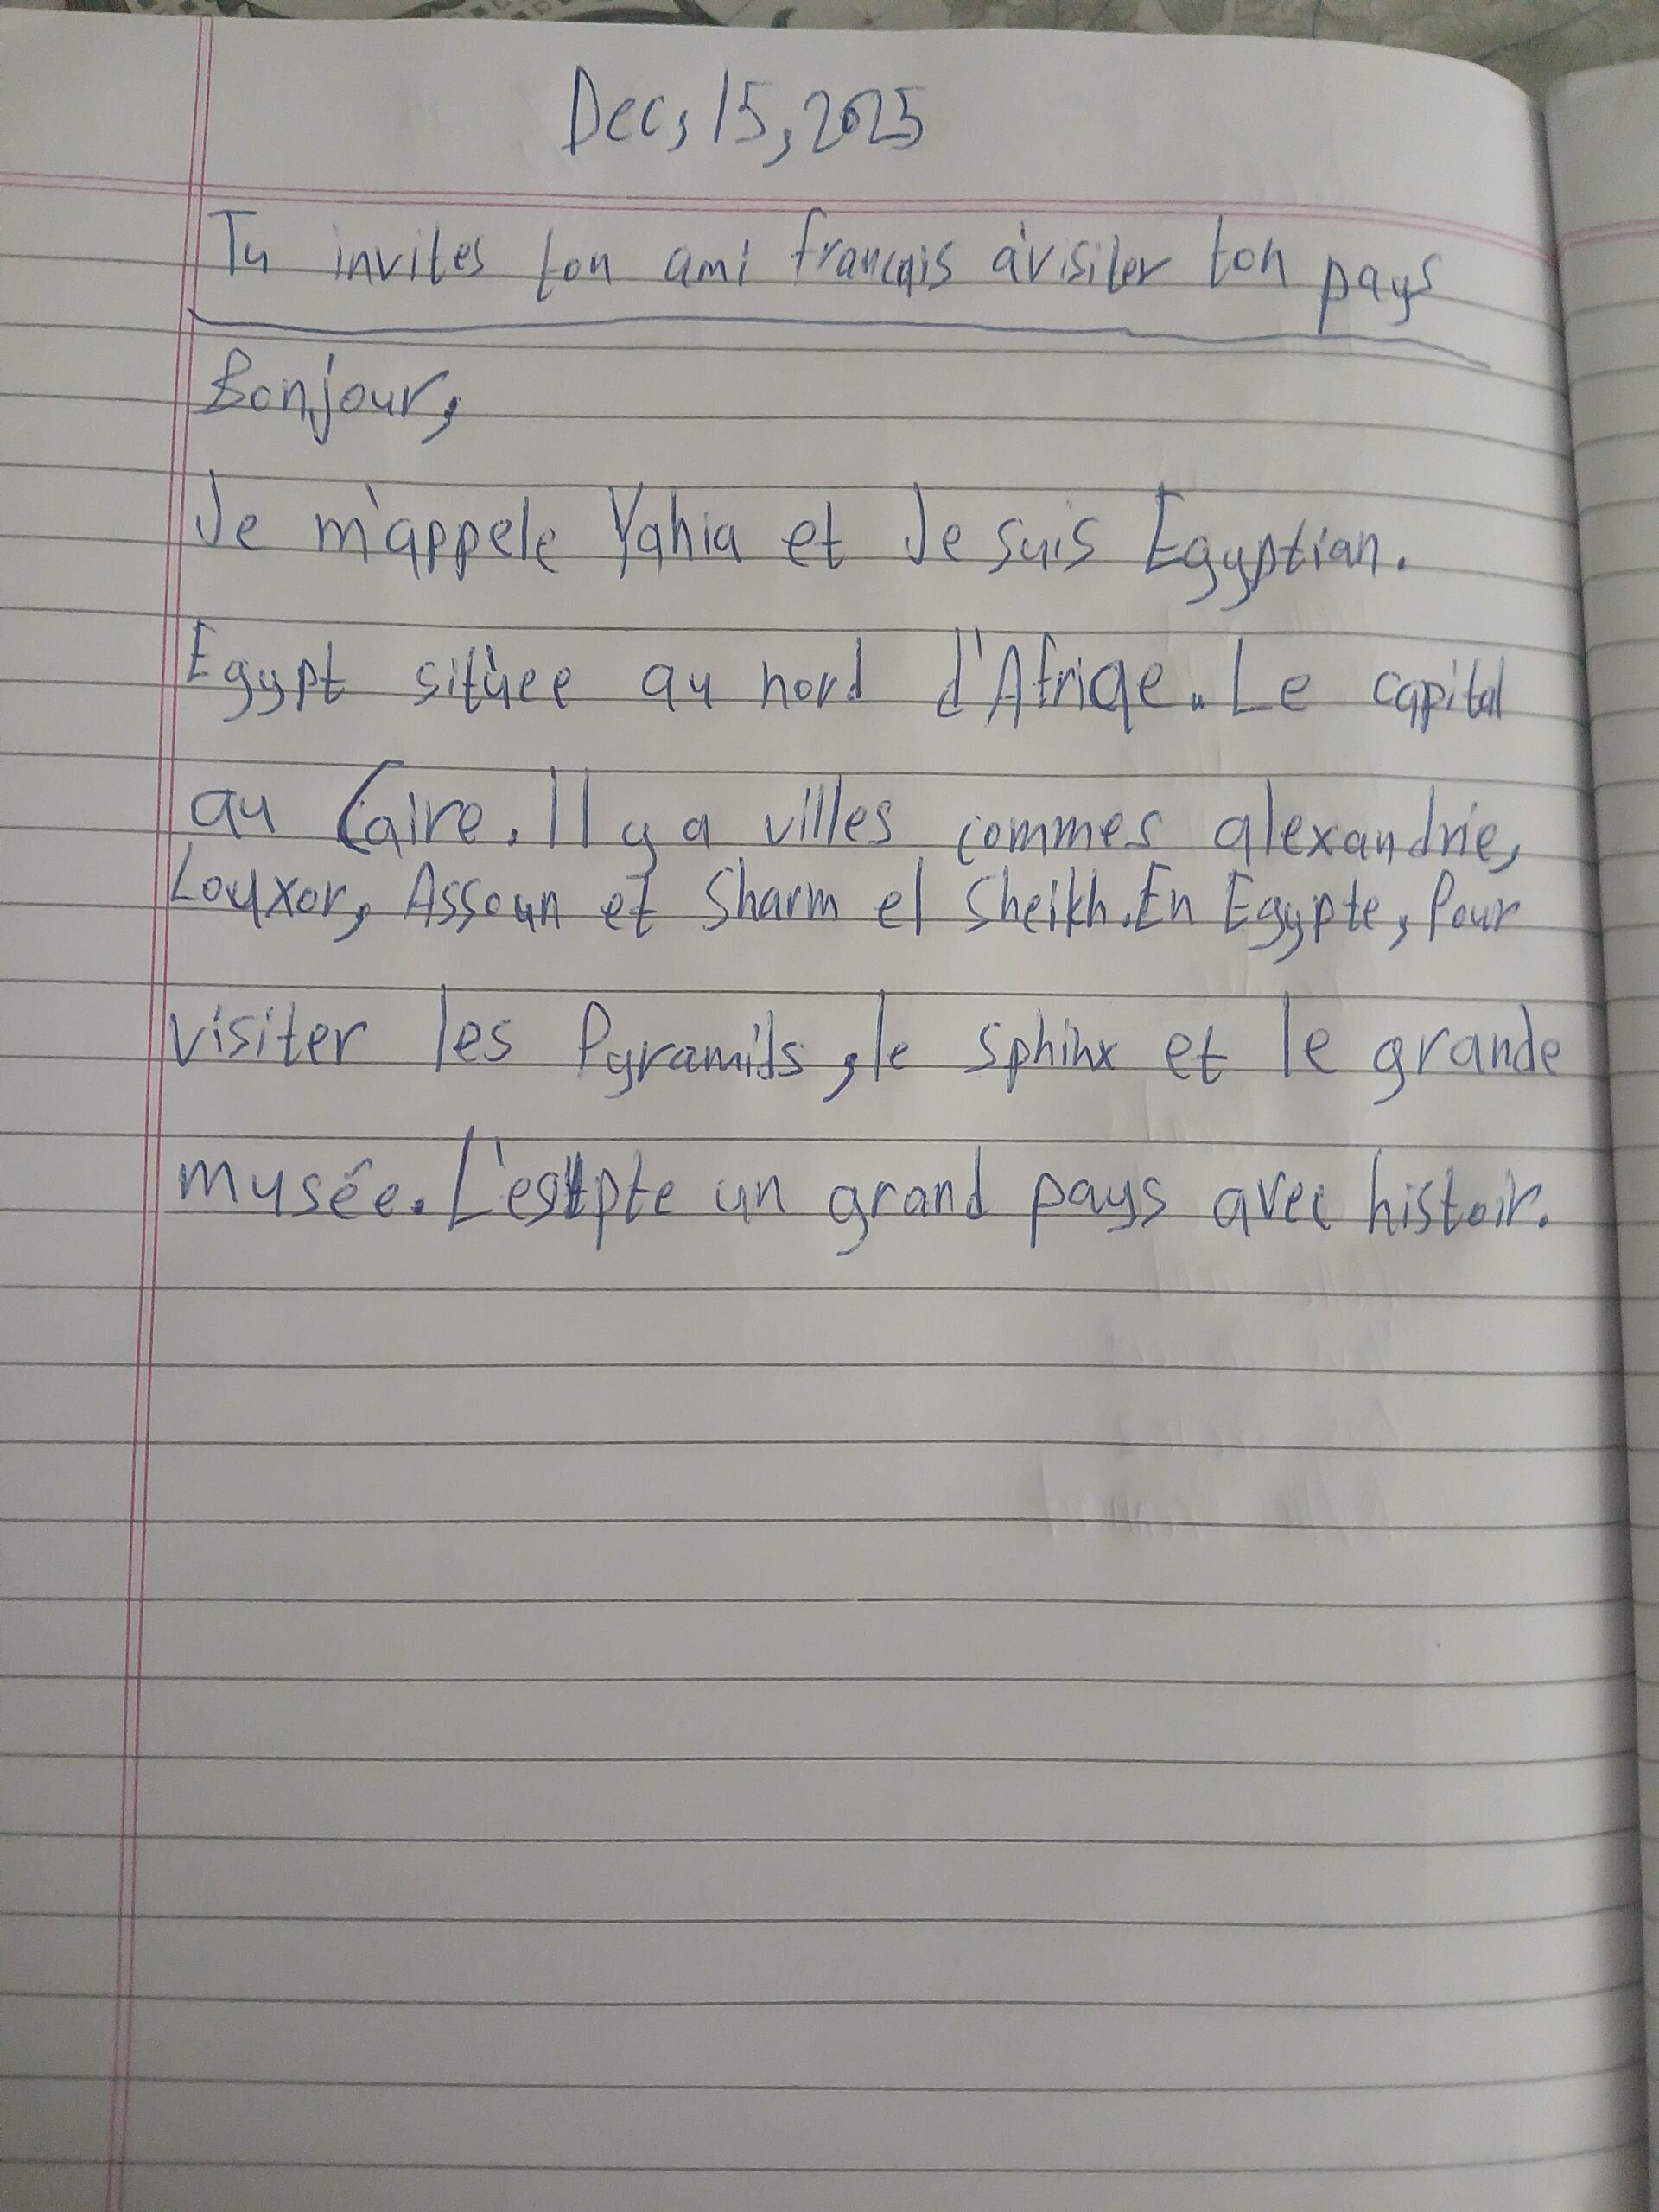 Dec, 15, 2025
Tu invites ton ami français à visiter ton pays
Bonjour,
Je m'appele Yahia et Je suis Egyptian.
Egypt situèe au nord d'Afriqe. Le capital
au Caire. Il y a villes commes alexandrie,
Louxor, Assoun et Sharm el Sheikh. En Egypte, Pour
visiter les Pyramids, le Sphinx et le grande
musée. L'egypte un grand pays avec histoir.